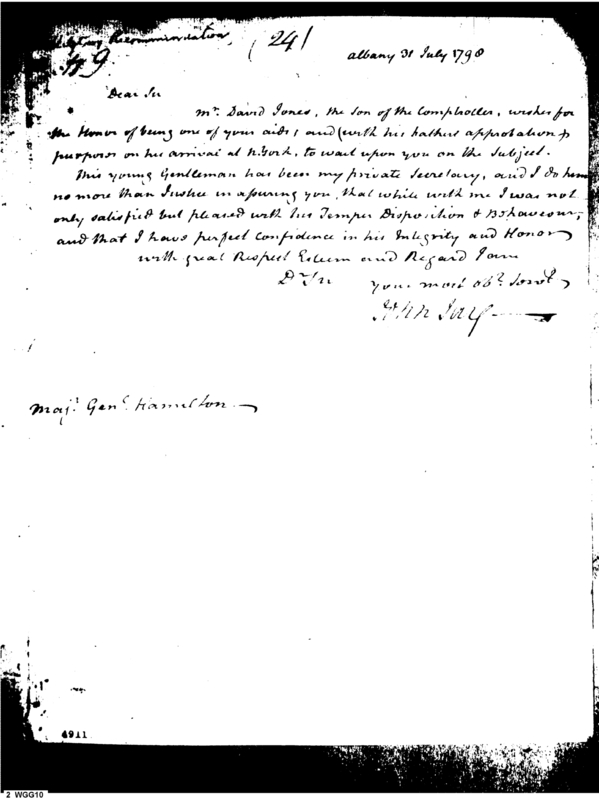 Recommendation, (24)
No. 9
Albany 31 July 1798
Dear Sir
Mr. David Jones, the Son of the Comptroller, wishes for
the Honor of being one of your aids; and (with his Fathers approbation)
purposes on his arrival at N.York, to wait upon you on the Subject.
This young Gentleman has been my private Secretary, and I do him
no more than Justice in assuring you, that while with me I was not
only satisfied but pleased with his Temper Disposition & Behaveour;
and that I have perfect Confidence in his Integrity and Honor
with great Respect Esteem and Regard I am
Dr Sir
your most obt. Servt.
John Jay
Majr. Genl. Hamilton
4911
2 WGG10